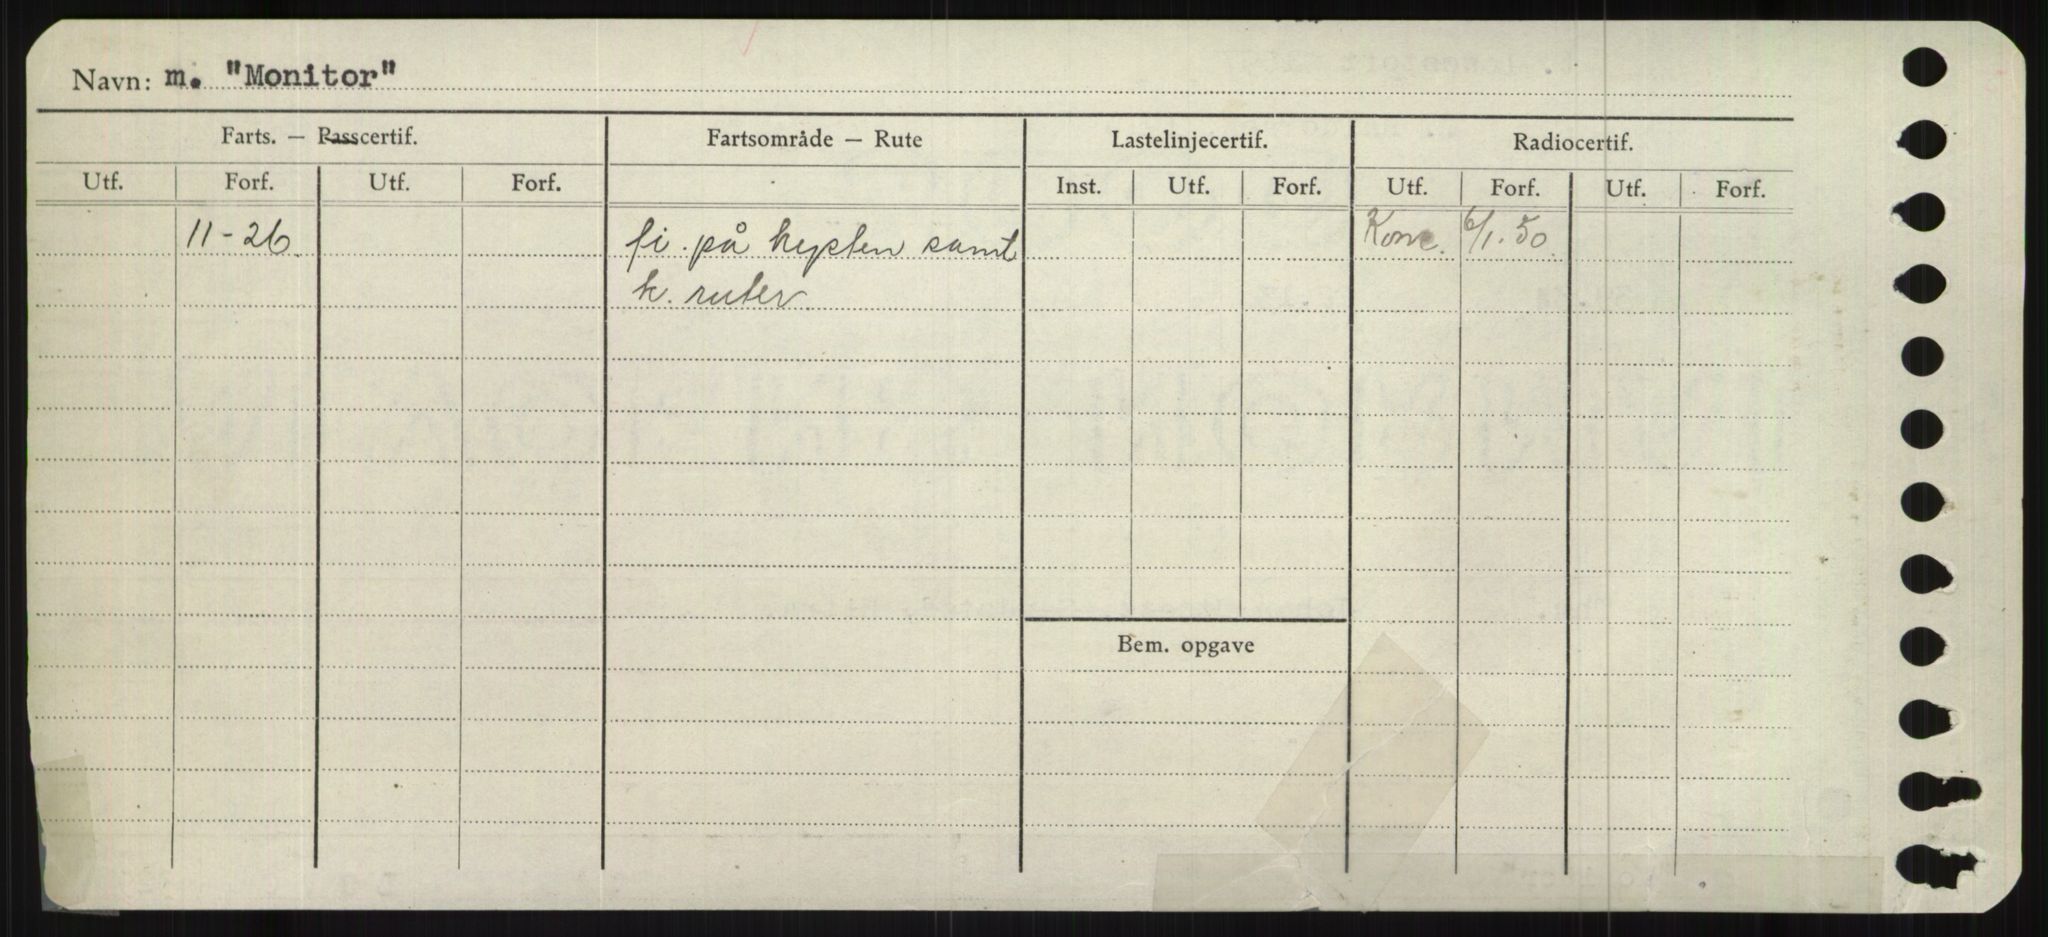 Navn: m. "Monitor"
Farts. — Passcertif. Fartsområde — Rute Lastelinjecertif. Radiocertif.
Utf. Forf. Utf. Forf. Inst. Utf. Forf. Utf. Forf. Utf. Forf.
11-26 fi. på kysten samt Konv. 6/1.50
k. ruter
Bem. opgave